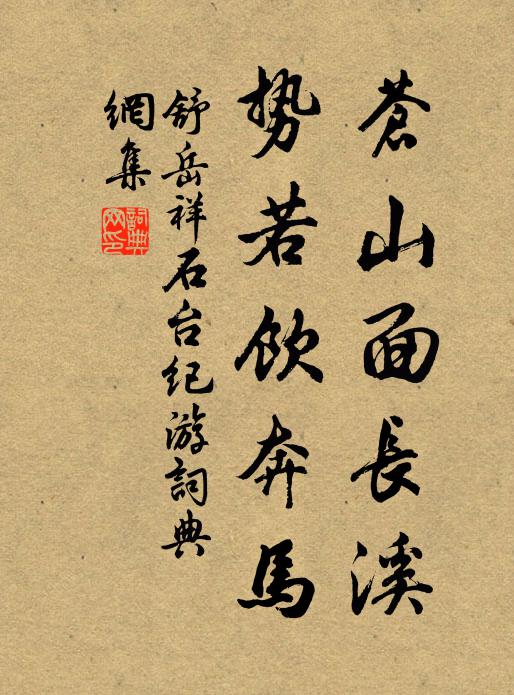 蒼山面長溪
势若飲奔馬
舒岳祥石台纪游詞典
網集
詞典網印